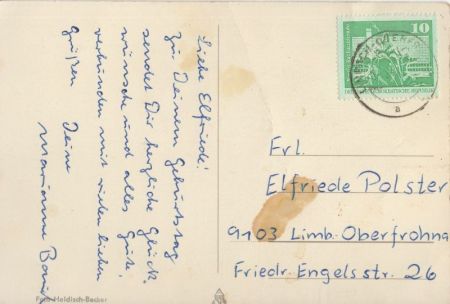 Liebe Elfriede!
Zu Deinem Geburtstag
sendet Dir herzliche Glück-
wünsche und alles Gute,
verbunden mit vielen lieben
Grüßen
Deine
Marianne
10
a
Frl.
Elfriede Polster
9103 Limb. Oberfrohna
Friedr. Engelsstr. 26
Foto Haldisch-Becker